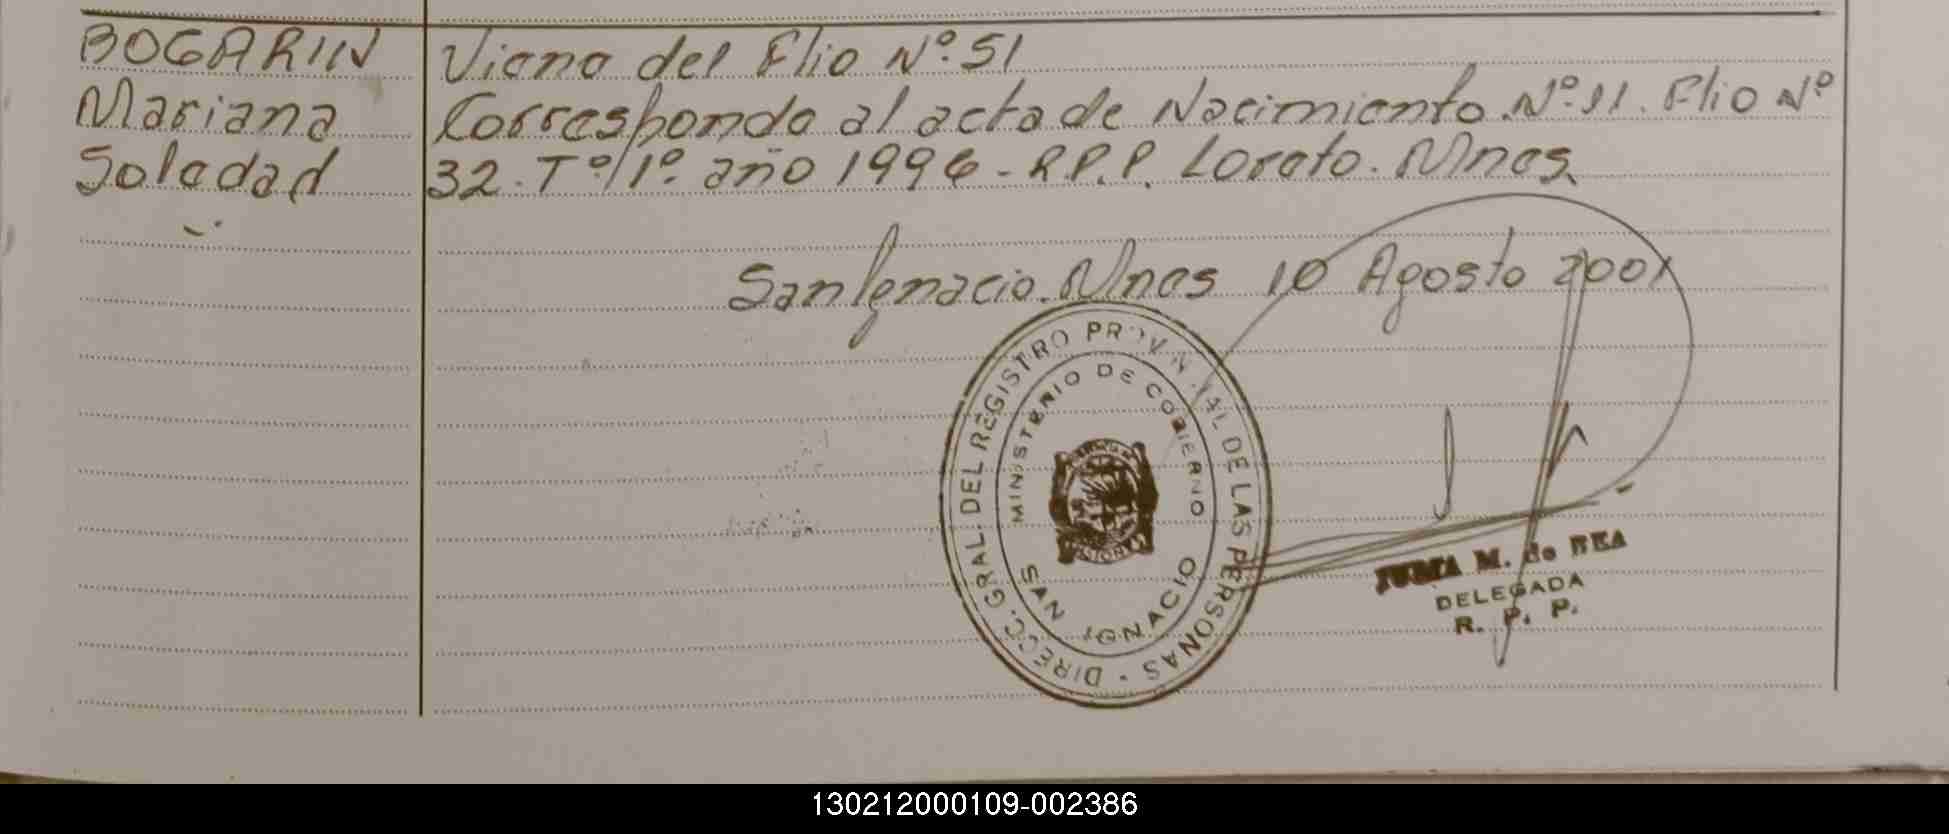 BOGARIN
Mariana
Soledad
Viene del Flio Nº 51
Corresponde al acta de Nacimiento. Nº 11. Flio Nº
32. Tº/1º. año 1996 - R.P.P. Loreto. Mnes.
San Ignacio. Mnes 10 Agosto 2001
DIRECC. GRAL. DEL REGISTRO PROVINCIAL DE LAS PERSONAS
MINISTERIO DE GOBIERNO
SAN IGNACIO
M. de BEA
DELEGADA
R. P. P.
130212000109-002386